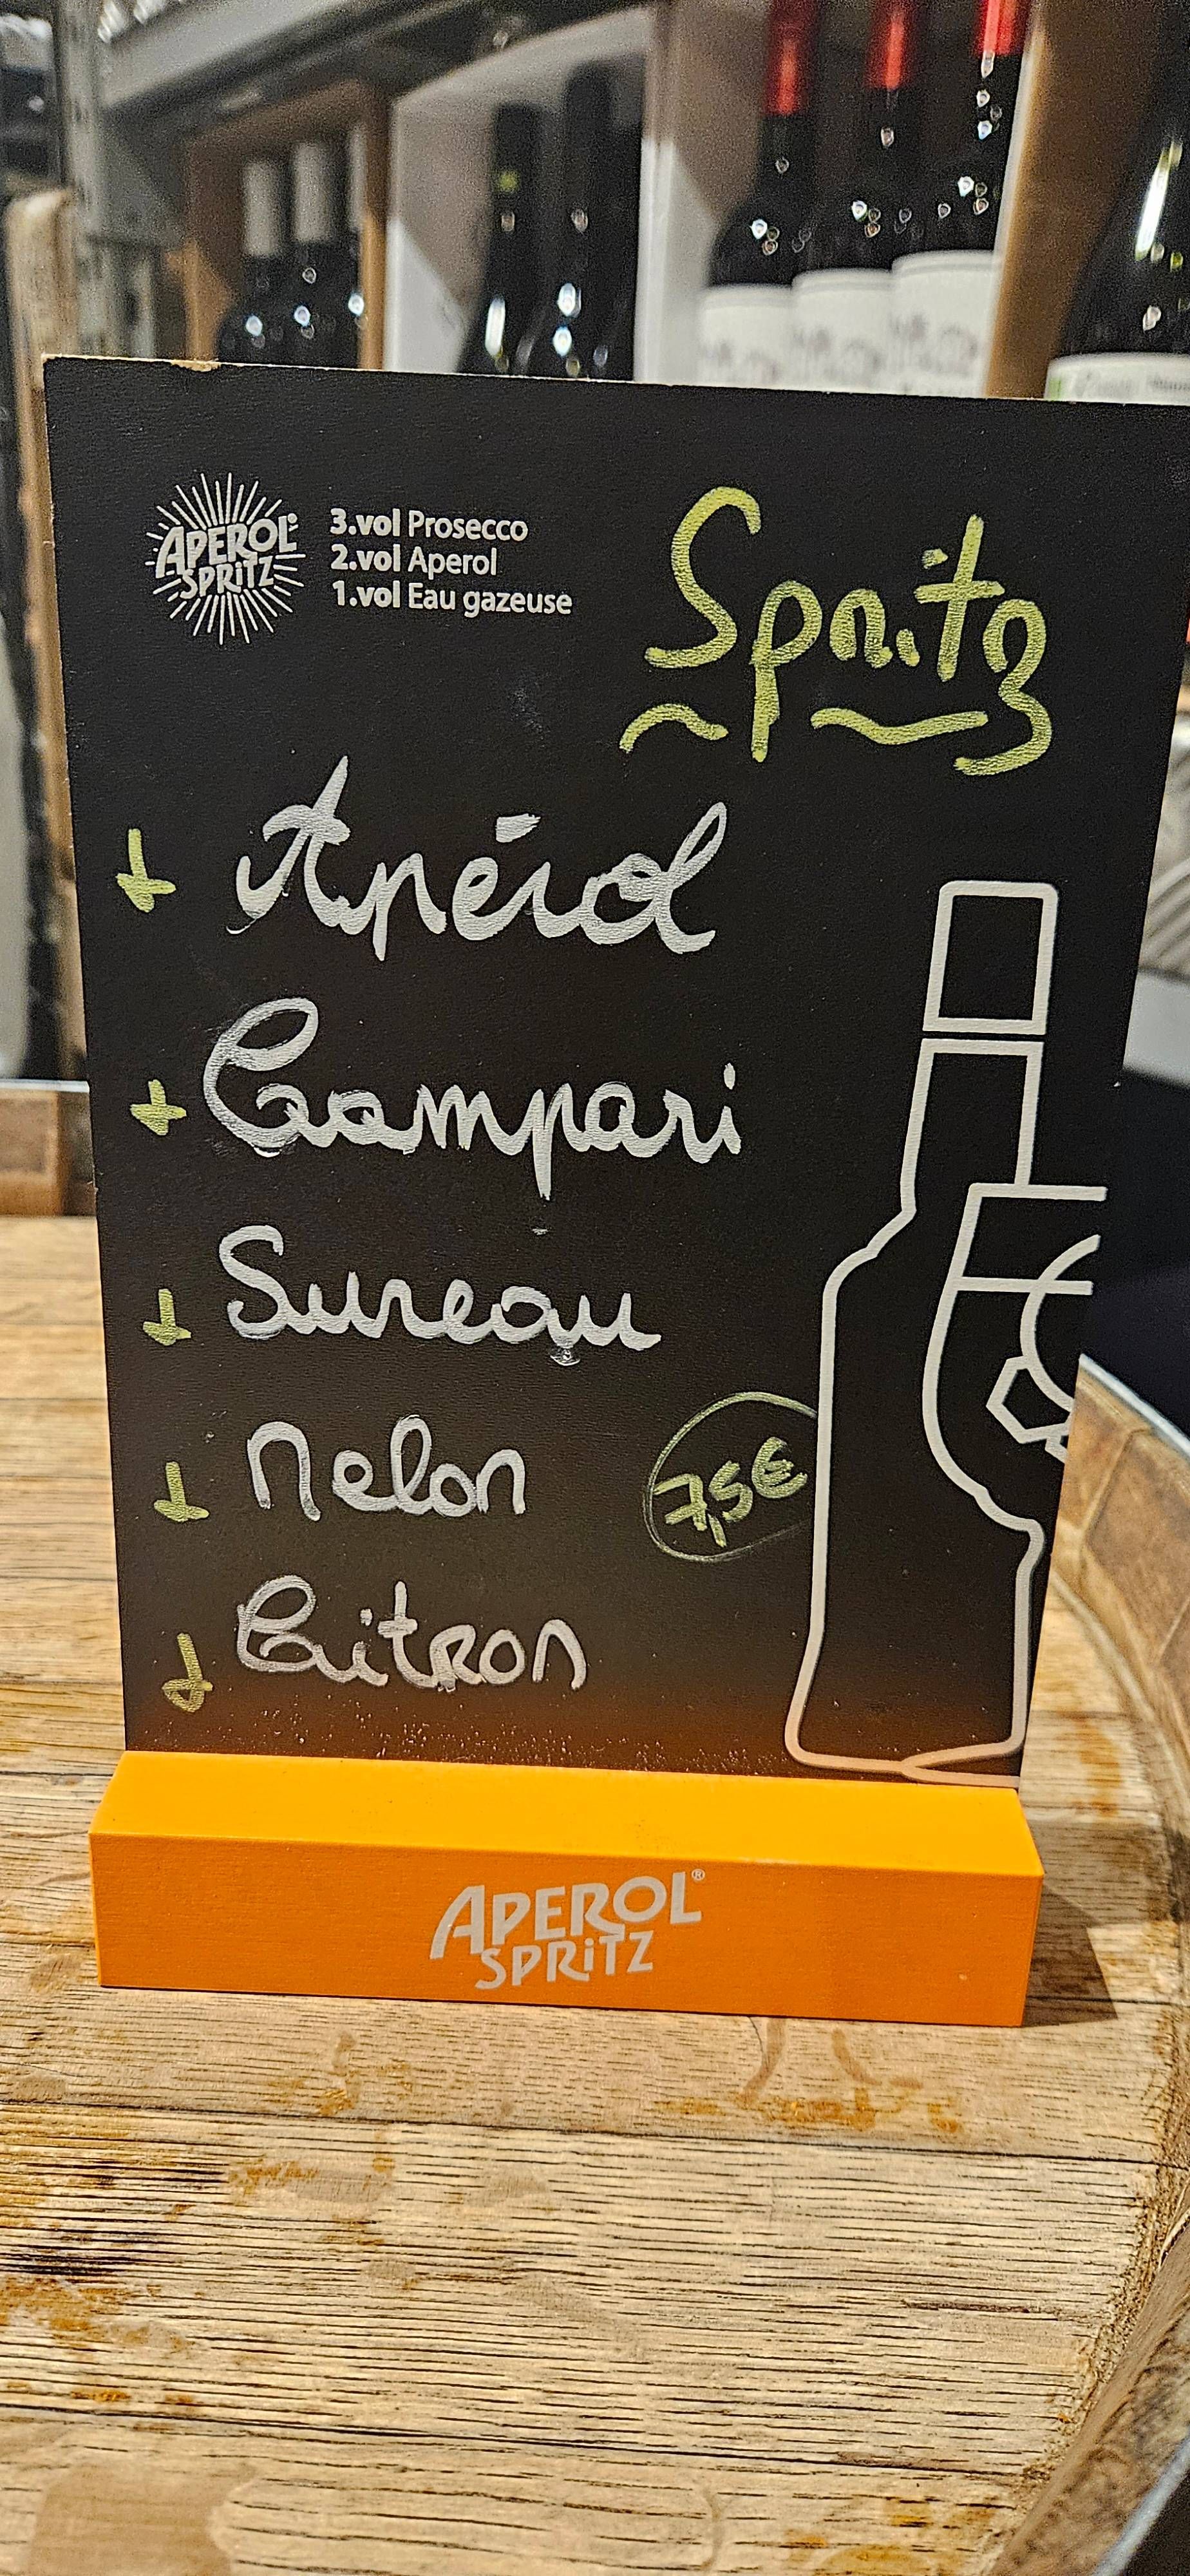 APEROL®
SPRiTZ
3.vol Prosecco
2.vol Aperol
1.vol Eau gazeuse
Spritz
+ Apérol
+ Campari
+ Sureau
+ Melon
7,5€
+ Citron
APEROL®
SPRiTZ